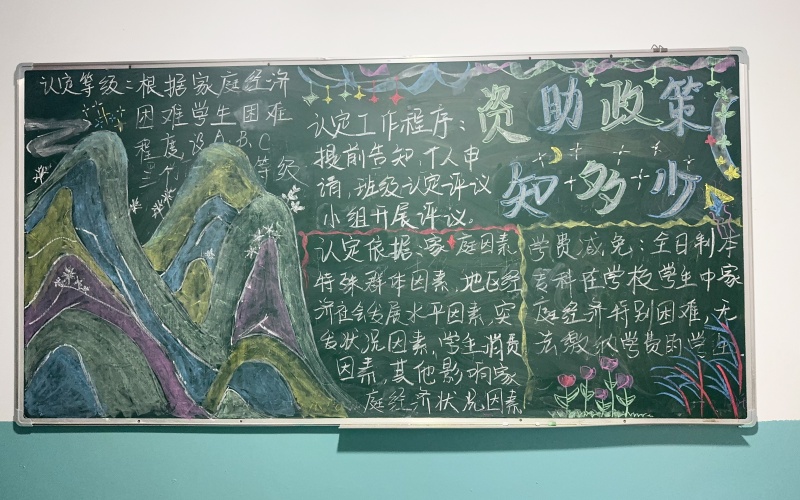 资助政策
知多少
认定等级:根据家庭经济
困难学生困难
程度,设A、B、C
三个等级
认定工作程序:
提前告知,个人申
请,班级认定评议
小组开展评议。
认定依据:家庭因素,
特殊群体因素,地区经
济社会发展水平因素,突
发状况因素,学生消费
因素,其他影响家
庭经济状况因素
学费减免:全日制本
专科在学校学生中家
庭经济特别困难,无
法缴纳学费的学生